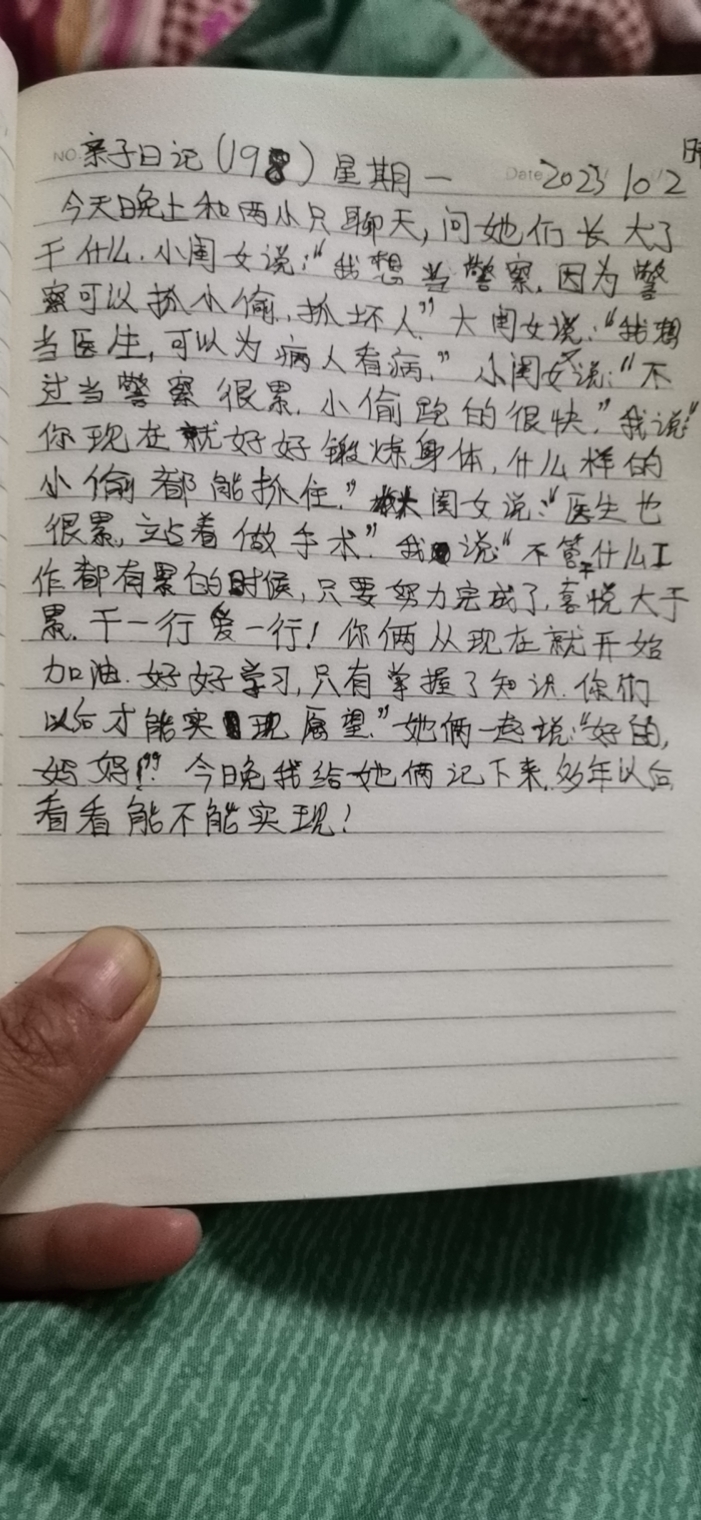 NO. 亲子日记(198) 星期一 Date 2023 10 2
今天晚上和两小只聊天,问她们长大了
干什么.小闺女说:“我想当警察,因为警
察可以抓小偷,抓坏人”大闺女说:“我想
当医生,可以为病人看病.”小闺女说:“不
过当警察很累,小偷跑的很快.”我说:“
你现在就好好锻炼身体,什么样的
小偷都能抓住.”大闺女说:“医生也
很累,站着做手术.”我说:“不管干什么工
作都有累的时候,只要努力完成了,喜悦大于
累.干一行爱一行!你俩从现在就开始
加油.好好学习,只有掌握了知识.你们
以后才能实现愿望.”她俩一起说:“好的,
妈妈!”今晚我给她俩记下来,多年以后
看看能不能实现!